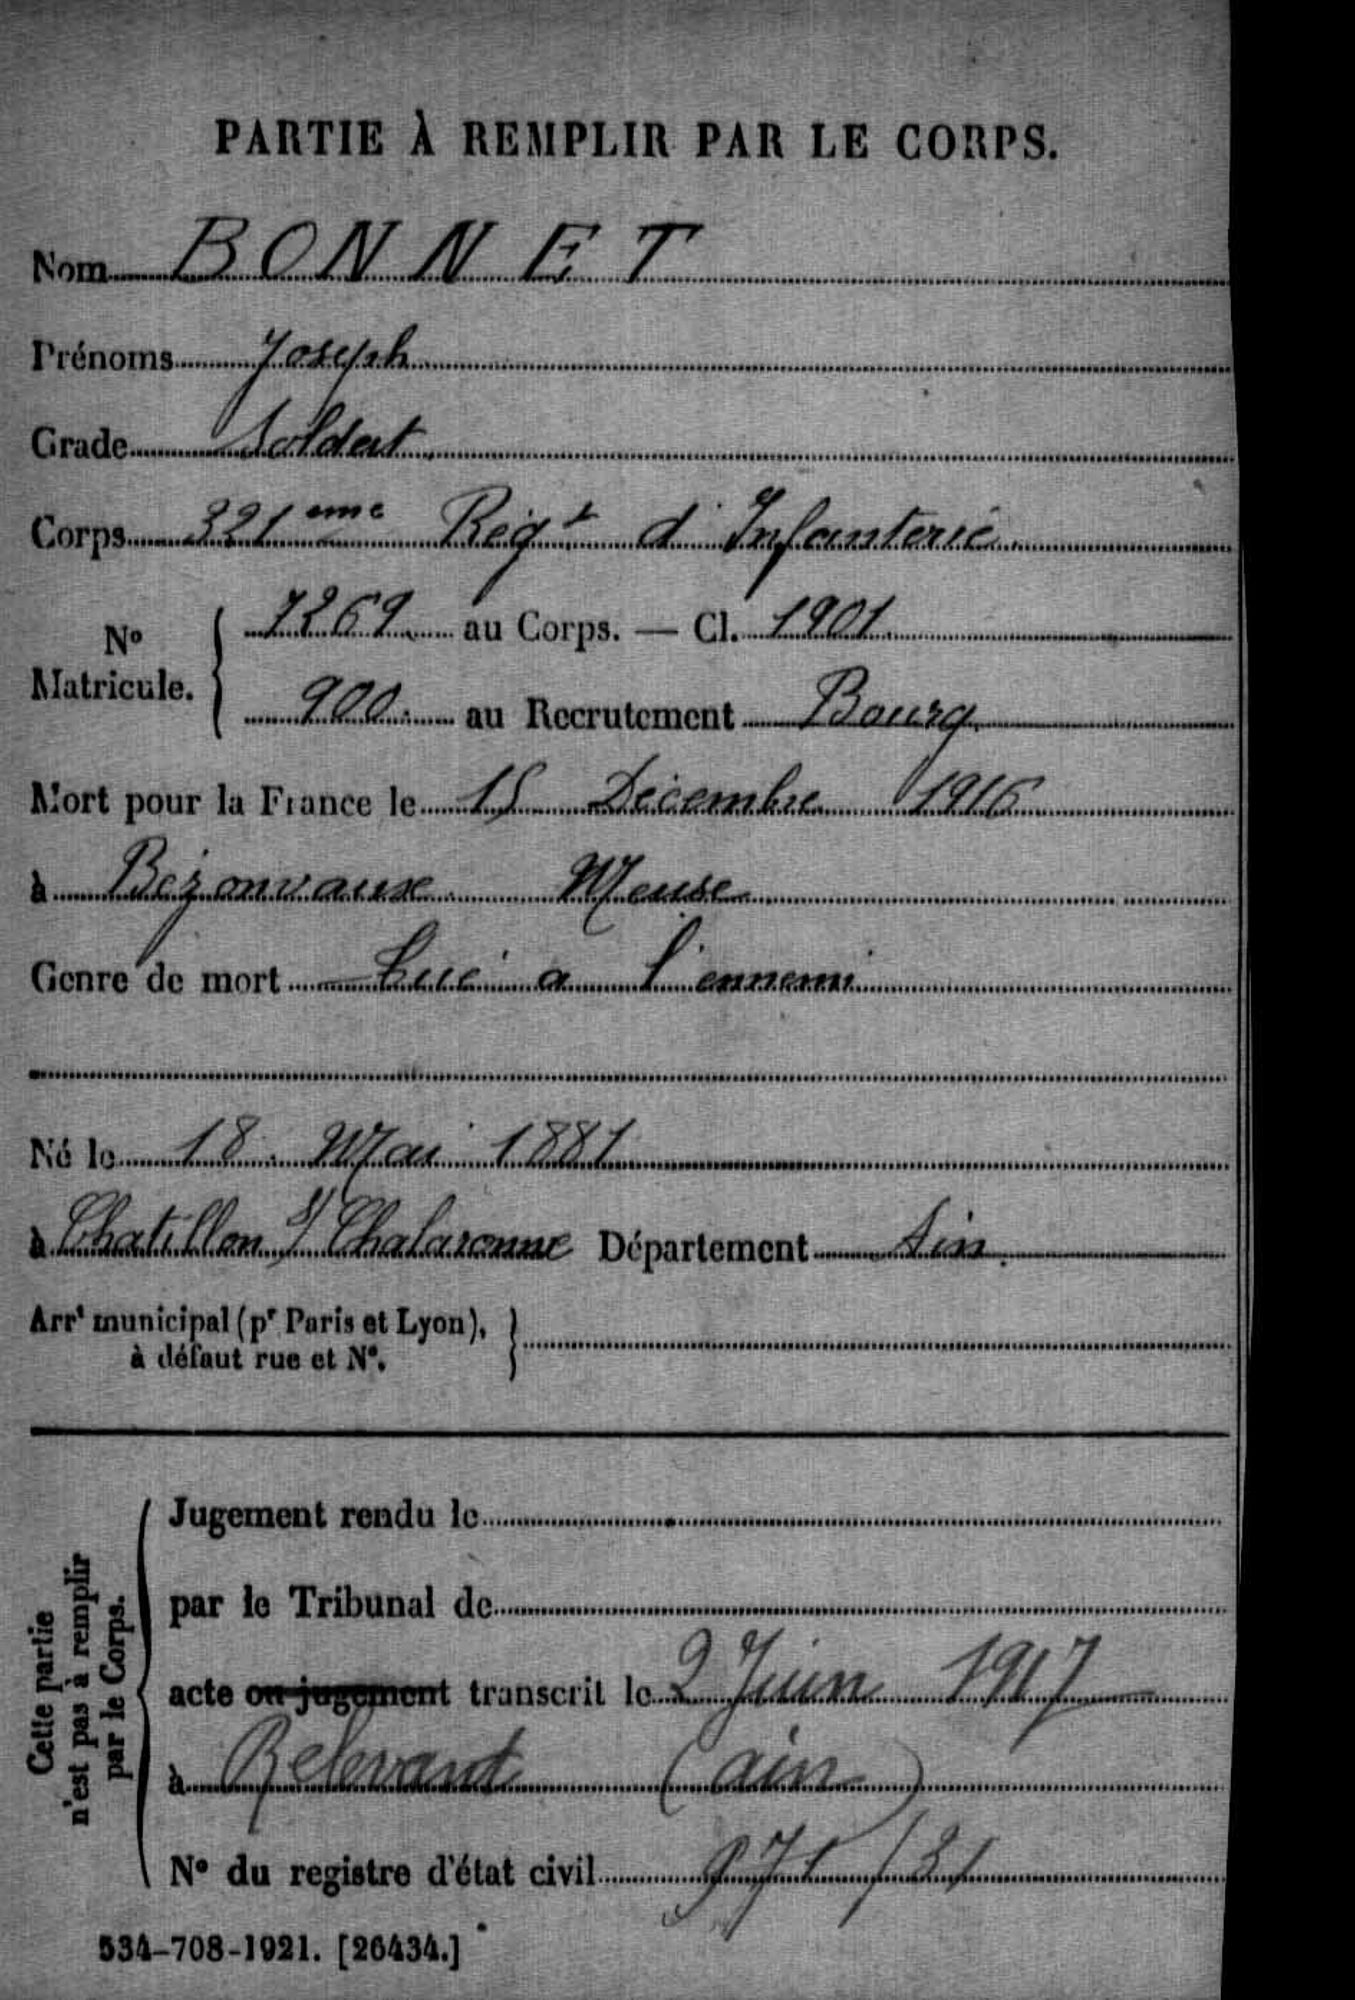 PARTIE À REMPLIR PAR LE CORPS.
Nom BONNET
Prénoms Joseph
Grade Soldat
Corps 321eme Regt d'Infanterie
No Matricule. 7269 au Corps. — Cl. 1901.
900. au Recrutement Bourg
Mort pour la France le 15 Décembre 1916
à Bezonvaux Meuse
Genre de mort Tué a l'ennemi
Né le 18 Mai 1881
à Chatillon s/ Chalaronne Département Ain.
Arrt municipal (pr Paris et Lyon),
à défaut rue et No.
Cette partie
n'est pas à remplir
par le Corps.
Jugement rendu le
par le Tribunal de
acte ou jugement transcrit le 2 Juin 1917
à Relevant (ain)
No du registre d'état civil
534-708-1921. [26434.]